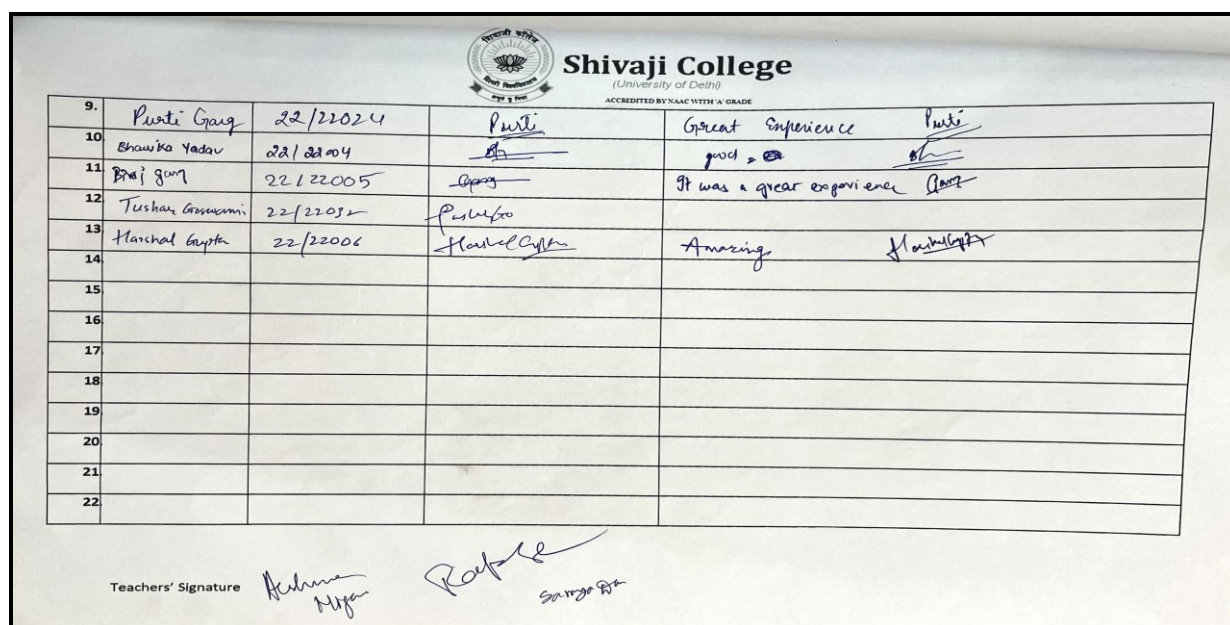 शिवाजी कॉलेज
Shivaji College
(University of Delhi)
ACCREDITED BY NAAC WITH 'A' GRADE
9. Purti Garg 22/22024 Purti Great Experience Purti
10. Bhawika Yadav 22/22004 good
11. garg 22/22005 It was a great experience Garg
12. Tushar Goswami 22/22032
13. Harshal Gupta 22/22006 Harshal Gupta Amazing Harshal Gupta
14.
15.
16.
17.
18.
19.
20.
21.
22.
Teachers' Signature